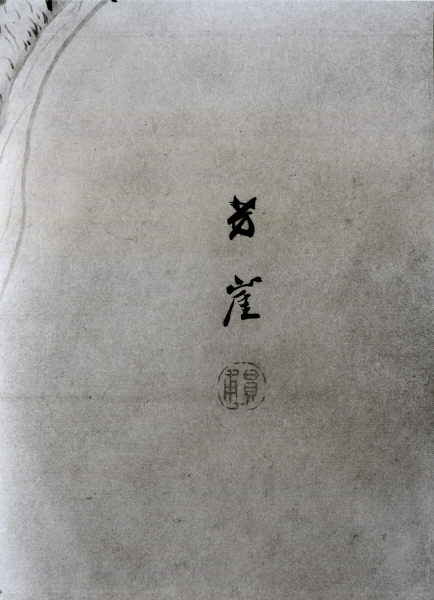 芳崖
貫甫